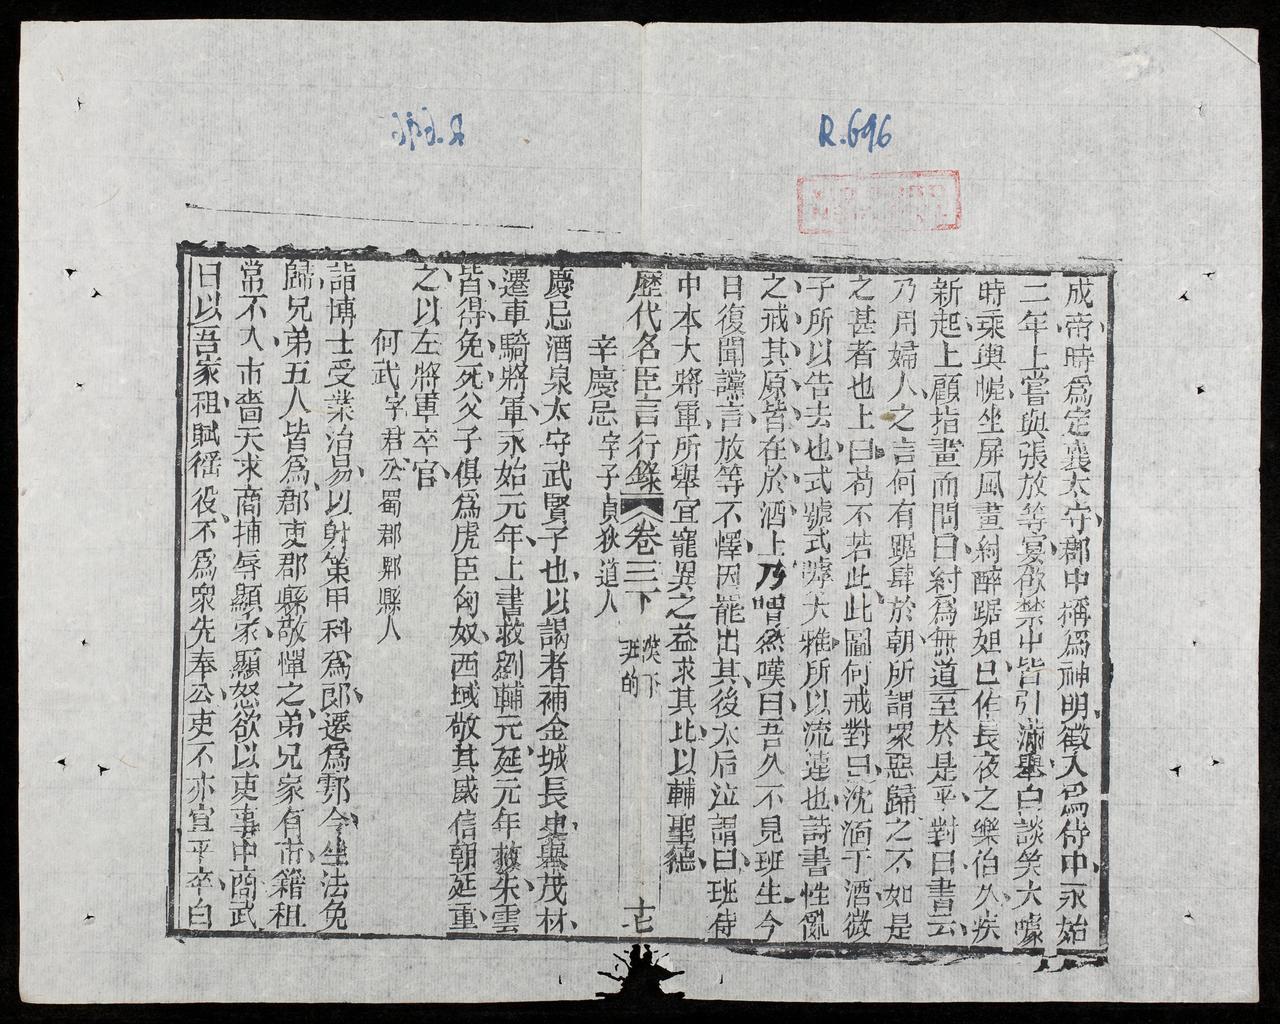 R.696
成帝時爲定襄太守郡中稱爲神明徵入爲侍中永始
二年上嘗與張放等宴飲禁中皆引滿舉白談笑大噱
時乘輿幄坐屏風畫紂醉踞妲巳作長夜之樂伯久疾
新起上顧指畫而問曰紂爲無道至於是乎對曰書云
乃用婦人之言何有踞肆於朝所謂衆惡歸之不如是
之甚者也上曰苟不若此此圖何戒對曰沈湎于酒微
子所以告去也式號式謼大雅所以流漣也詩書性亂
之戒其原皆在於酒上乃喟然嘆曰吾久不見班生今
日復聞讜言放等不懌因罷出其後太后泣謂曰班侍
中本大將軍所舉宜寵異之益求其比以輔聖德
歷代名臣言行錄 卷三下 漢下 班的 十七
辛慶忌字子真狄道人
慶忌酒泉太守武賢子也以謁者補金城長史舉茂材
遷車騎將軍永始元年上書救劉輔元延元年救朱雲
皆得免死父子俱爲虎臣匈奴西域敬其威信朝廷重
之以左將軍卒官
何武字君公蜀郡郫縣人
詣博士受業治易以射策甲科爲郎遷爲鄠令坐法免
歸兄弟五人皆爲郡吏郡縣敬憚之弟兄家有市籍租
常不入市嗇夫求商捕辱顯家顯怒欲以吏事中商武
曰以吾家租賦徭役不爲衆先奉公吏不亦宜乎卒白